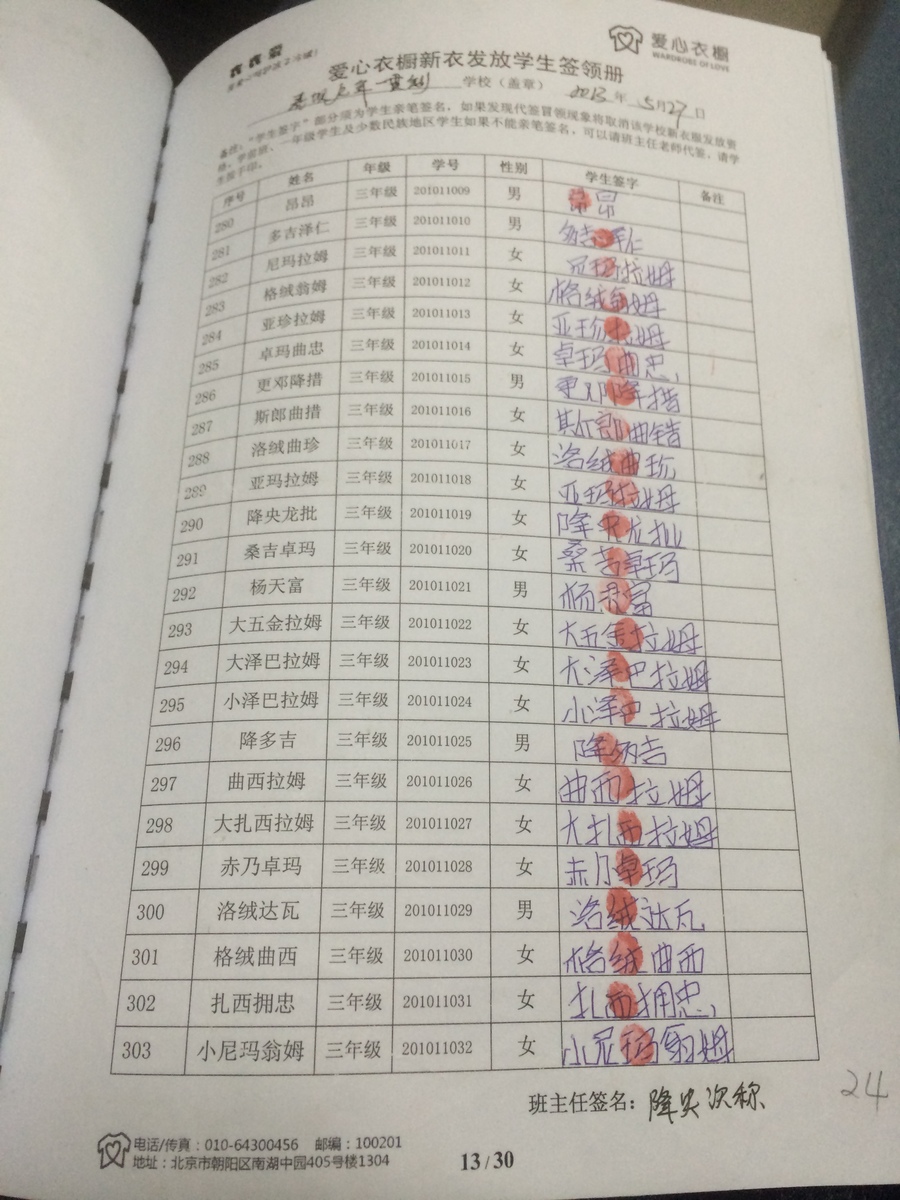 衣衣爱
爱心衣橱
WARDROBE OF LOVE
爱心衣橱新衣发放学生签领册
学校（盖章） 2013年 5月27日
备注："学生签字"部分须为学生亲笔签名，如果发现代签冒领现象将取消该学校新衣服发放资
格。学前班、一年级学生及少数民族地区学生如果不能亲笔签名，可以请班主任老师代签，请学
生按手印。
序号 姓名 年级 学号 性别 学生签字 备注
280 昂昂 三年级 201011009 男 昂昂
281 多吉泽仁 三年级 201011010 男 多吉泽仁
282 尼玛拉姆 三年级 201011011 女 尼玛拉姆
283 格绒翁姆 三年级 201011012 女 格绒翁姆
284 亚珍拉姆 三年级 201011013 女 亚珍拉姆
285 卓玛曲忠 三年级 201011014 女 卓玛曲忠
286 更邓降措 三年级 201011015 男 更邓降措
287 斯郎曲措 三年级 201011016 女 斯郎曲错
288 洛绒曲珍 三年级 201011017 女 洛绒曲珍
289 亚玛拉姆 三年级 201011018 女 亚玛拉姆
290 降央龙批 三年级 201011019 女 降央龙批
291 桑吉卓玛 三年级 201011020 女 桑吉卓玛
292 杨天富 三年级 201011021 男 杨天富
293 大五金拉姆 三年级 201011022 女 大五金拉姆
294 大泽巴拉姆 三年级 201011023 女 大泽巴拉姆
295 小泽巴拉姆 三年级 201011024 女 小泽巴拉姆
296 降多吉 三年级 201011025 男 降多吉
297 曲西拉姆 三年级 201011026 女 曲西拉姆
298 大扎西拉姆 三年级 201011027 女 大扎西拉姆
299 赤乃卓玛 三年级 201011028 女 赤乃卓玛
300 洛绒达瓦 三年级 201011029 男 洛绒达瓦
301 格绒曲西 三年级 201011030 女 格绒曲西
302 扎西拥忠 三年级 201011031 女 扎西拥忠
303 小尼玛翁姆 三年级 201011032 女 小尼玛翁姆
班主任签名：降央次称
24
电话/传真：010-64300456 邮编：100201
地址：北京市朝阳区南湖中园405号楼1304
13/30